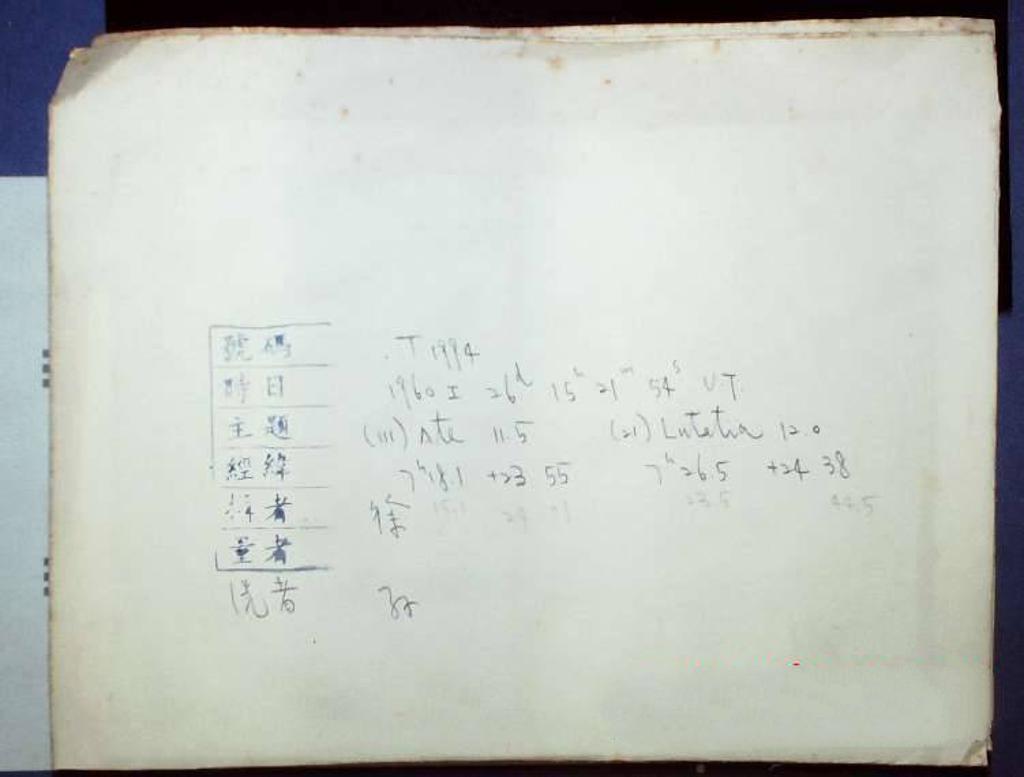 號碼 T 1994
時日 1960 I 26d 15h 21m 54s UT
主題 (111) Ate 11.5 (21) Lutetia 12.0
經緯 7h18.1 +23 55 7h26.5 +24 38
者 徐 23.5 44.5
量者
洗者 孙